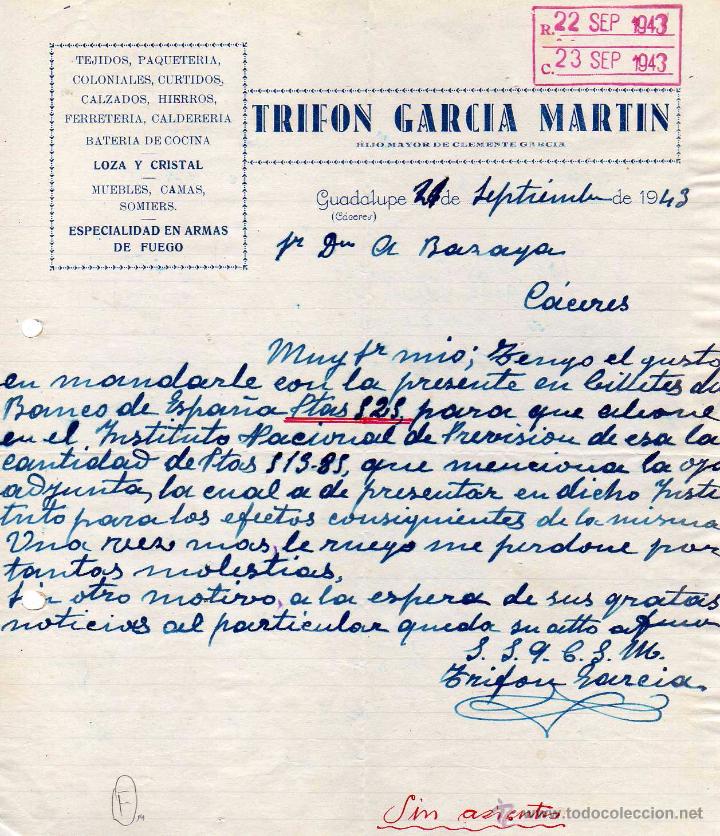 R. 22 SEP 1943
C. 23 SEP 1943
TEJIDOS, PAQUETERIA,
COLONIALES, CURTIDOS,
CALZADOS, HIERROS,
FERRETERIA, CALDERERIA
BATERIA DE COCINA
LOZA Y CRISTAL
MUEBLES, CAMAS,
SOMIERS.
ESPECIALIDAD EN ARMAS
DE FUEGO
TRIFON GARCIA MARTIN
HIJO MAYOR DE CLEMENTE GARCIA
Guadalupe 21 de Septiembre de 1943
(Cáceres)
Sr Dn A Bazaga
Cáceres
Muy Sr mio; Tengo el gusto
en mandarle con la presente en billetes del
Banco de España Ptas 525, para que abone
en el Instituto Nacional de Prevision de esa la
cantidad de Ptas 513.85, que menciona la oja
adjunta, la cual a de presentar en dicho Insti
tuto para los efectos consiguientes de la misma
Una vez mas, le ruego me perdone por
tantas molestias,
Sin otro motivo, a la espera de sus gratas
noticias al particular queda su atto
S. S. q. E. S. M.
Trifon Garcia.
F
Sin asiento
www.todocoleccion.net